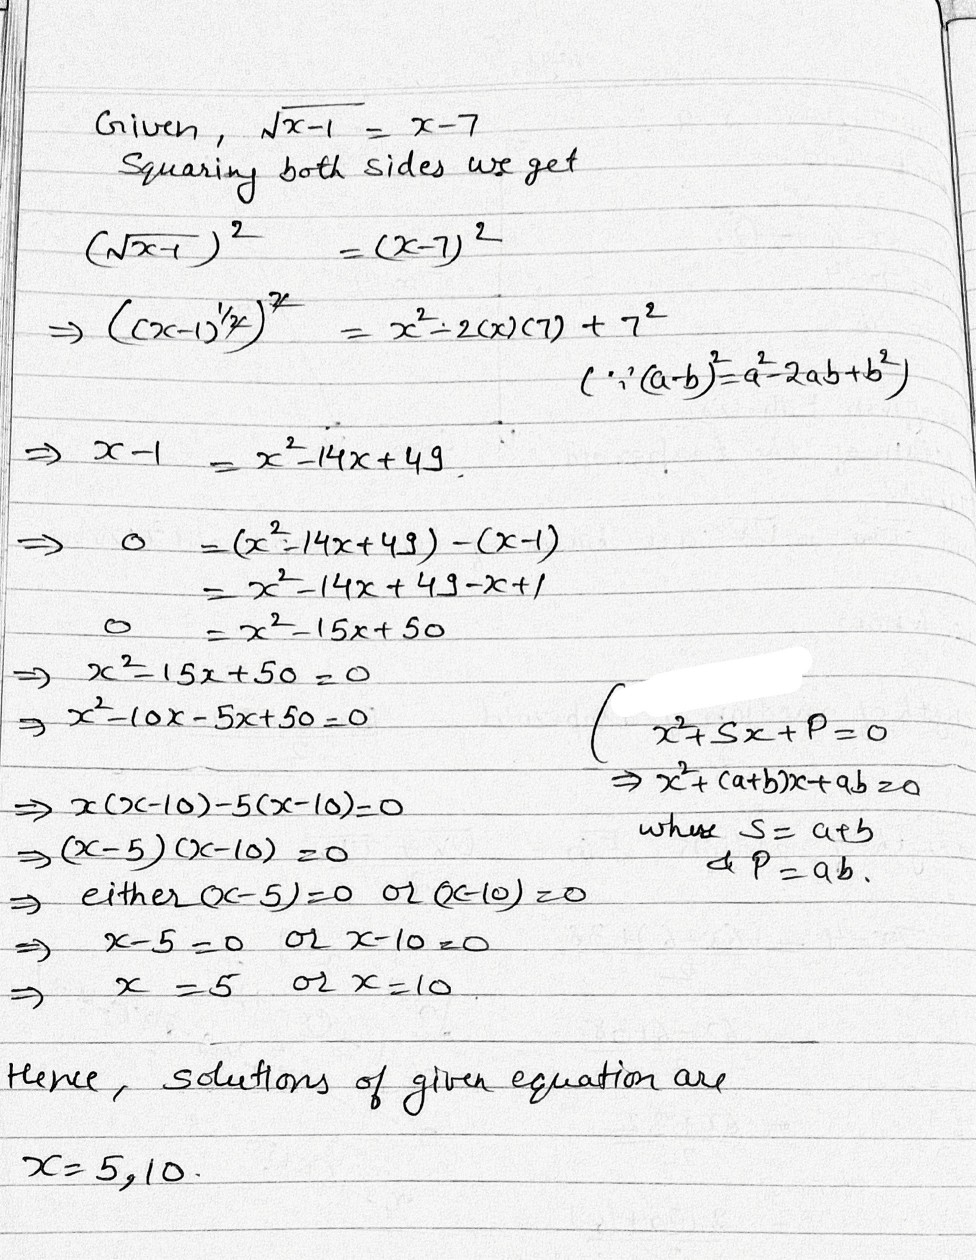 Given, √x-1 = x-7
Squaring both sides we get
(√x-1)² = (x-7)²
⇒ ((x-1)^1/2)^2 = x²-2(x)(7) + 7²
(∵ (a-b)²=a²-2ab+b²)
⇒ x-1 = x²-14x+49
⇒ 0 = (x²-14x+49) -(x-1)
= x²-14x+49-x+1
0 = x²-15x+50
⇒ x²-15x+50=0
⇒ x²-10x-5x+50=0
( x²+Sx+P=0
⇒ x²+(a+b)x+ab=0
where S= a+b
& P=ab.
⇒ x(x-10)-5(x-10)=0
⇒ (x-5)(x-10) =0
⇒ either (x-5)=0 or (x-10)=0
⇒ x-5=0 or x-10=0
⇒ x =5 or x=10
Hence, solutions of given equation are
x=5,10.